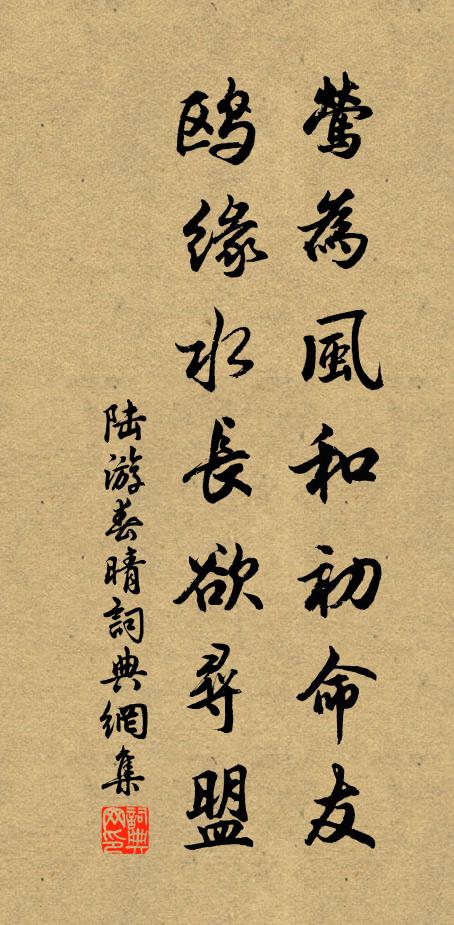 鶯為風和初命友
鸥緣水長欲尋盟
陆游春晴詞典網集
詞典网印